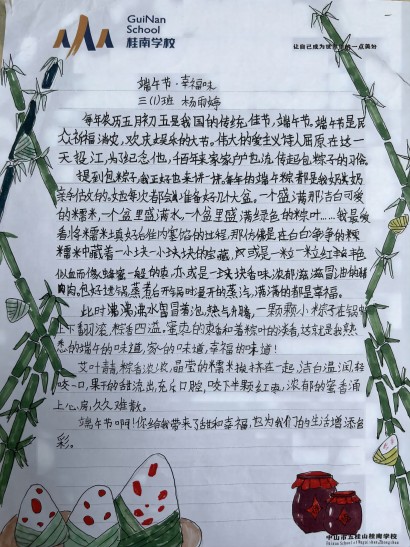 GuiNan
School
桂南学校
让自己成为世界的一点美好
端午节·幸福味
三(1)班 杨雨婷
每年农历五月初五是我国的传统佳节,端午节。端午节是民
众祈福消灾,欢庆娱乐的大节。伟大的爱国主义诗人屈原在这一
天投江,为了纪念他,千百年来家家户户也流传起包粽子的习俗。
提到包粽子,我正好也来讲一讲。每年的端午粽都是我奶奶
亲手包的。她每次都会准备好几个大盆,一个盛满那洁白可爱
的糯米,一个盆里盛满水,一个盆里盛满绿色的粽叶……我最爱
看将糯米填好后往内塞馅的过程,那仿佛是在白白净净的糯
米粽中藏着一小块一小块的宝藏,或是一粒一粒红艳艳
似血而像蜂蜜一般的枣,亦或是一块块香味浓郁滋滋冒油的
肉。包好过后蒸煮,打开锅时漫开的蒸汽,满满的都是幸福。
此时沸沸水冒着泡,热气升腾,一颗颗小粽子在锅中
上下翻滚,粽香四溢。蜜枣的爽甜和着粽叶的清香,这就是我熟
悉的端午的味道,家的味道,幸福的味道!
艾叶青,粽香浓浓,晶莹的糯米拥挤在一起,洁白温润,轻
咬一口,果干的甜流出,充斥口腔,咬下半颗红枣,浓郁的蜜香涌
上心房,久久难散。
端午节啊!你给我带来了甜和幸福,也为我们的生活增添色
彩。
中山市五桂山桂南学校